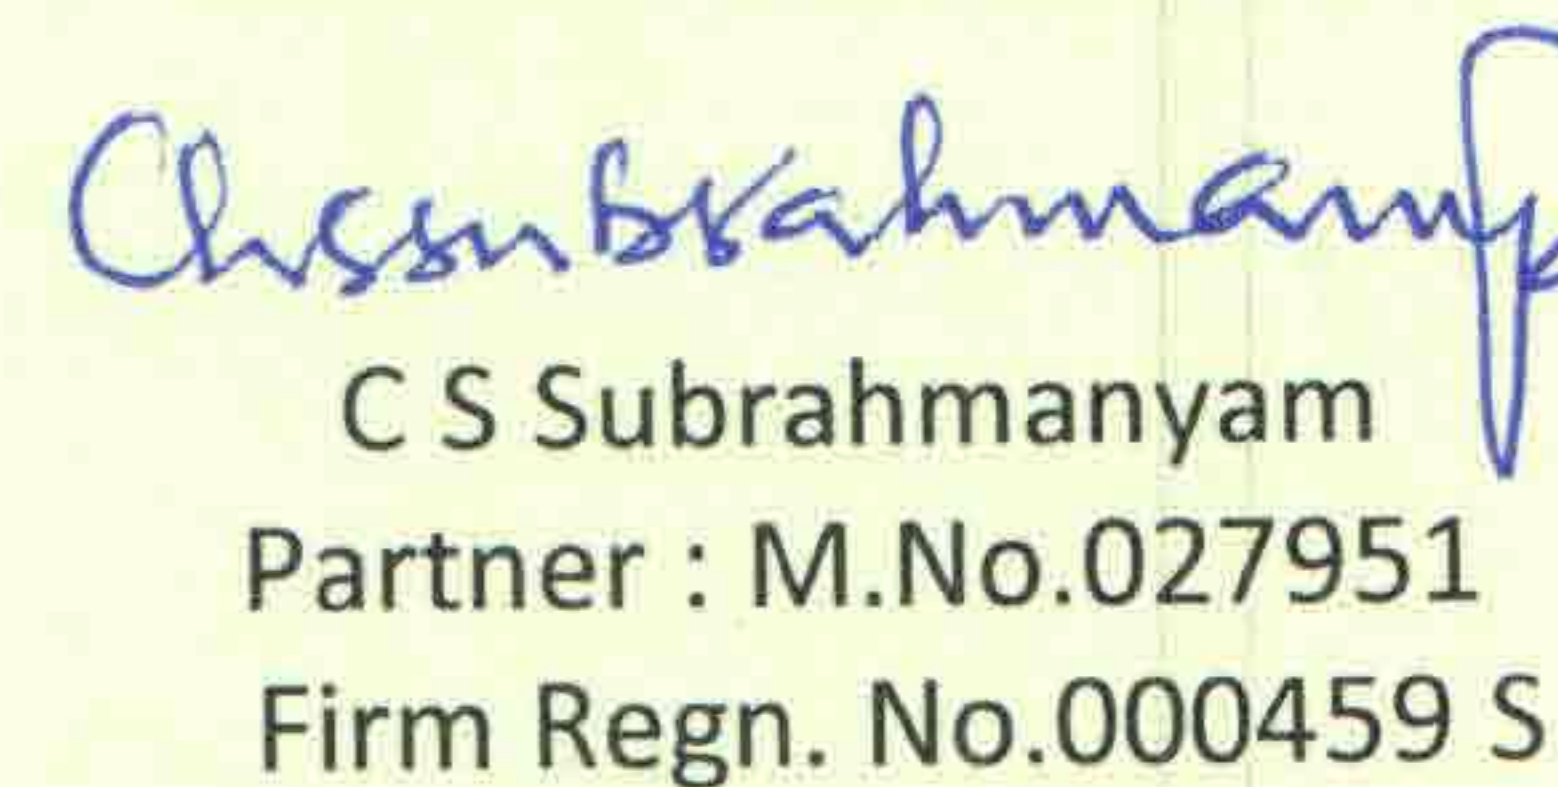 ChSSubrahmanya
C S Subrahmanyam
Partner : M.No.027951
Firm Regn. No.000459 S